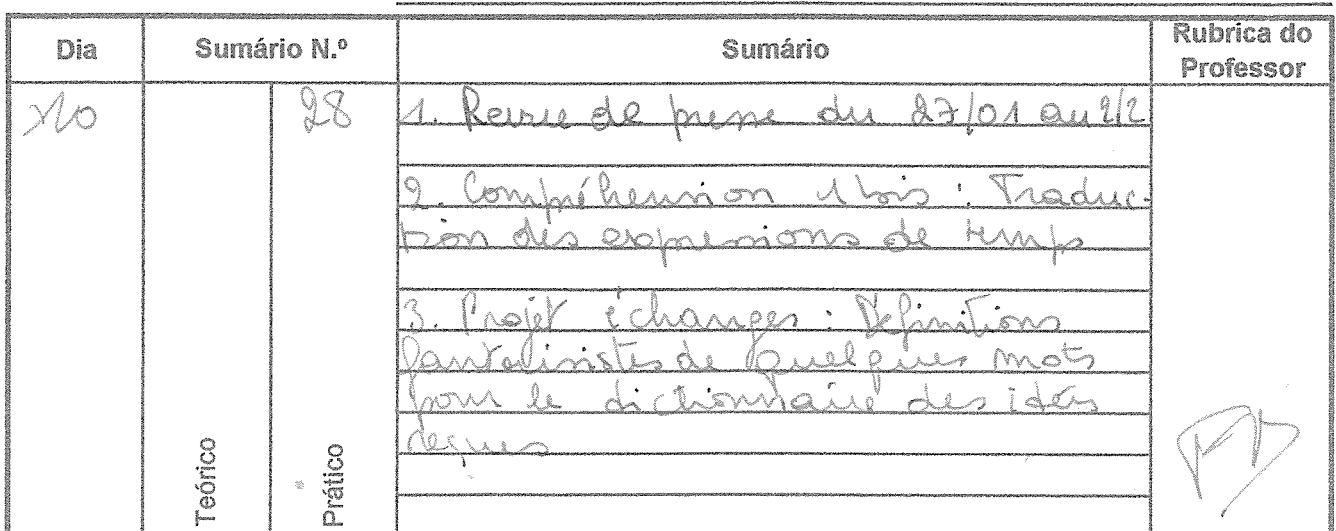 Dia Sumário N.º Sumário Rubrica do Professor
28
1. Revue de presse du 27/01 au 2/2
2. Compréhension : Traduc-
tion des expressions de temps
3. Projet échanges : Définitions
fantaisistes de quelques mots
pour le dictionnaire des idées
reçues
Teórico
Prático